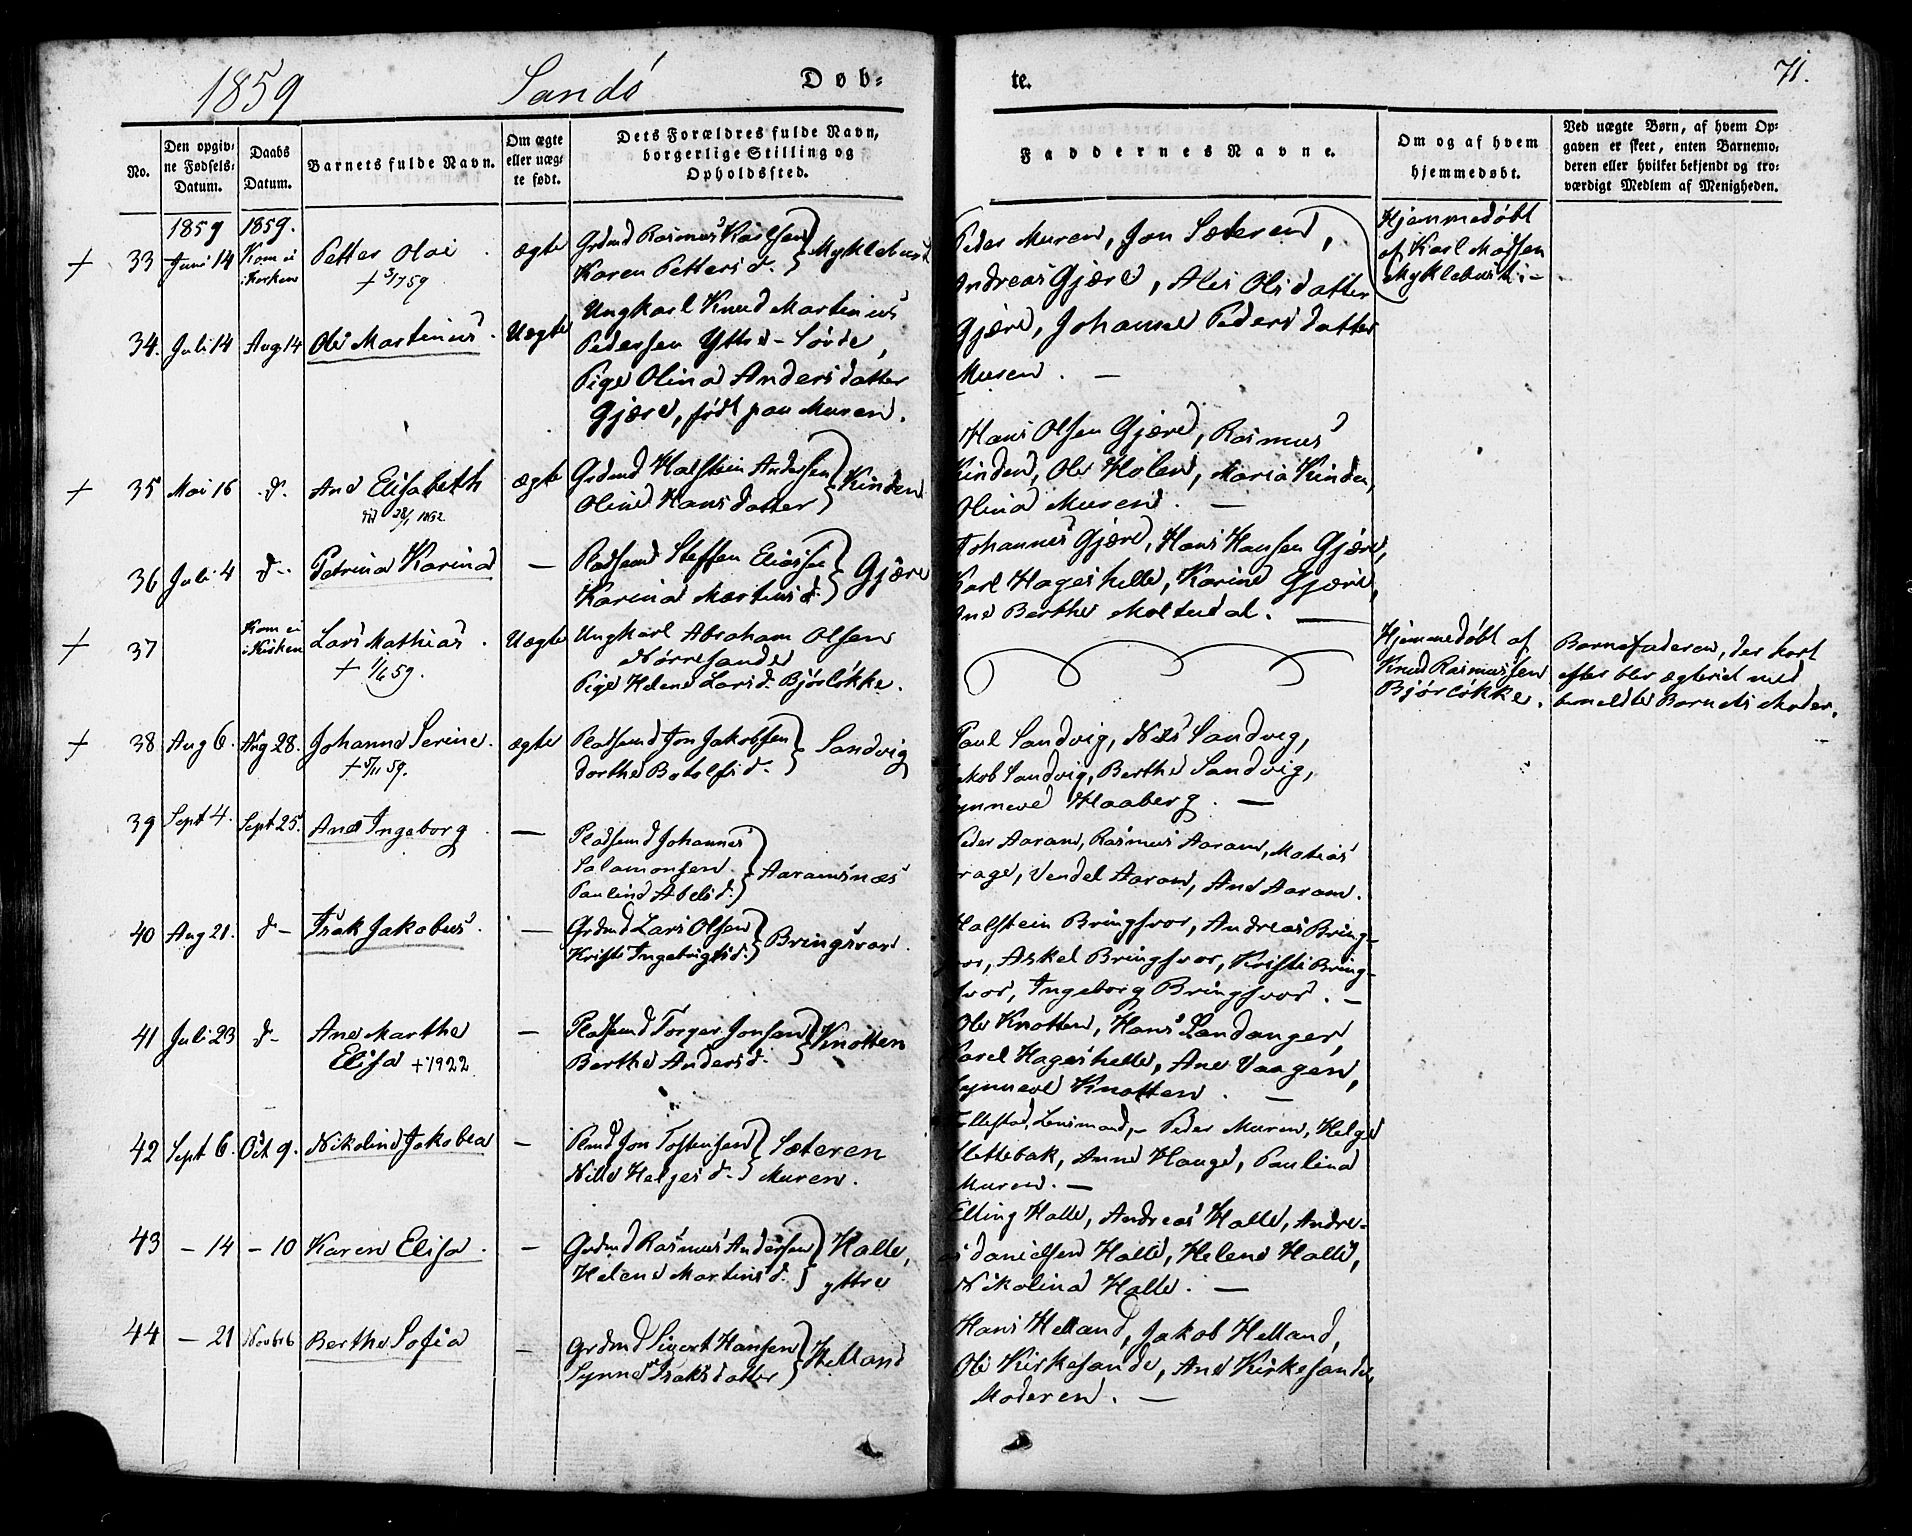 1859 Sandö Døb-
te. 71.
No.
Den opgiv-
ne Fødsels-
Datum.
Daabs
Datum.
Barnets fulde Navn.
Om ægte
eller uæg-
te født.
Dets Forældres fulde Navn,
borgerlige Stilling og
Opholdssted.
Faddernes Navne.
Om og af hvem
hjemmedøbt.
Ved uægte Børn, af hvem Op-
gaven er skeet, enten Barnemo-
deren eller hvilket bekjendt og tro-
værdigt Medlem af Menigheden.
1859 1859.
+ 33 Juni 14 Kom ei
i Kirken
Petter Olai
+ 3/7 59
ægte
Grdmd Rasmus Karlsen
Karen Pettersd. } Myklebust
Hjemmedöbt
af Karl Madsen
Myklebust.-
34. Juli 14 Aug 14 Ole Martinius. Uægte
Ungkarl Knud Martinius
Pedersen Yttre-Sövde,
Pige Olina Andersdatter
Gjære, født paa Muren.
Peder Muren, Jon Sæteren,
Andreas Gjære, Ales Olsdatter
Gjære, Johanne Pedersdatter
Muren. -
+ 35 Mai 16 d. Ane Elisabeth
død 28/1 1862
ægte
Grdmd Halstein Andersen
Oline Hansdatter } Kinden
Hans Olsen Gjære, Rasmus
Kinden, Ole Holen, Maria Kinden,
Olina Muren. -
36 Juli 4 d.. Petrina Karina —
Pladsmd Steffen Eliassen
Karina Martinusd. } Gjære
Johannes Gjære, Hans Hansen Gjære,
Karl Hageskelle, Karine Gjære,
Ane Berthe Moltudal. —
+ 37 Kom ei
i Kirken
Lars Mathias.
+ 1/6 59.
Uægte
Ungkarl Abraham Olsen
Nörresande
Pige Helene Larsd. Bjørløkke.
Hjemmedöbt af
Knud Rasmussen
Bjørløkke.
Barnefaderen, der kort
efter blev ægteviet med
bemeldte Barnets Moder.
+ 38 Aug 6. Aug 28. Johanne Serine.
+ 5/11 59.
ægte
Pladsmd Jon Jakobsen
Dorthe Botolfsd. } Sandvig
Paul Sandvig, Nils Sandvig,
Jakob Sandvig, Berthe Sandvig,
Synneve Haaberg. —
39 Sept 4. Sept 25. Ane Ingeborg —
Pladsmd Johannes
Salamonsen
Pauline Abelsd. } Aaramsnæs
Peder Aaram, Rasmus Aaram, Matias
Drage, Vendel Aaram, Ane Aaram.
40 Aug 21. d- Isak Jakobus. —
Grdmd Lars Olsen
Kristi Ingebrigtsd. } Bringsvor.
Halstein Bringsvor, Andreas Bring-
svor, Askel Bringsvor, Kristi Bring-
svor, Ingeborg Bringsvor. -
41 Juli 23 d- Ane Marthe
Elisa +1922
—
Pladsmd Torger Jonsen
Berthe Andersd. } Knotten
Ole Knotten, Hans Landanger,
Karel Hageskelle, Ane Vaagen,
Synneve Knotten. —
42 Sept 6. Oct 9. Nikoline Jakobea —
Pladsmd Jon Tostensen } Sæteren
Nille Helgesd. } Muren.
Tollestad, Lensmand, - Peder Muren, Helge
Slettebak, Anne Hauge, Paulina
Muren. —
43 - 14 - 10 Karen Elisa. —
Grdmd Rasmus Andersen
Helene Martinsd. } Halle,
yttre
Elling Halle, Andreas Halle, Andre-
as Danielsen Halle, Helene Halle,
Nikolina Halle. —
44 - 21 Novbr 6 Berthe Sofia —
Grdmd Sivert Hansen
Synne Isaksdatter } Helland
Hans Helland, Jakob Helland,
Ole Kirkesande, Ane Kirkesande,
Moderen. —